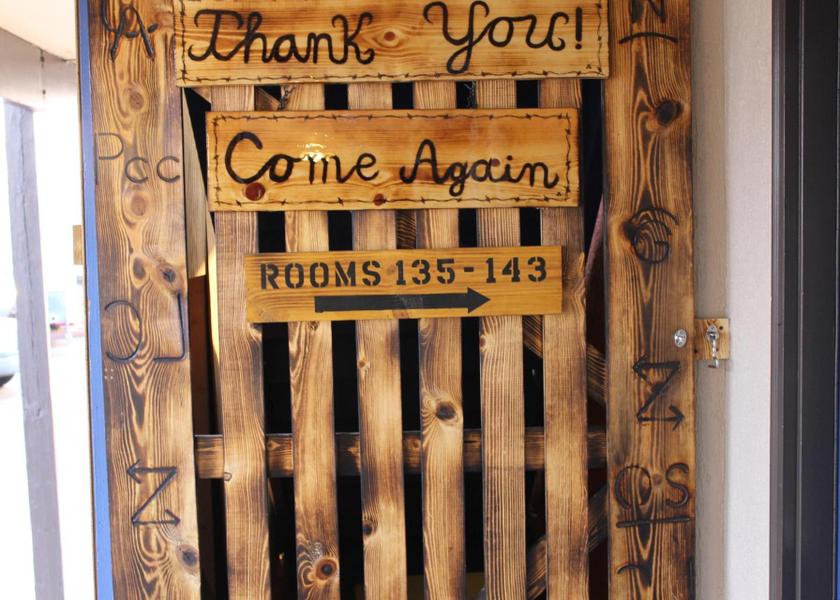 Thank You!
Come Again
ROOMS 135-143
Pcc